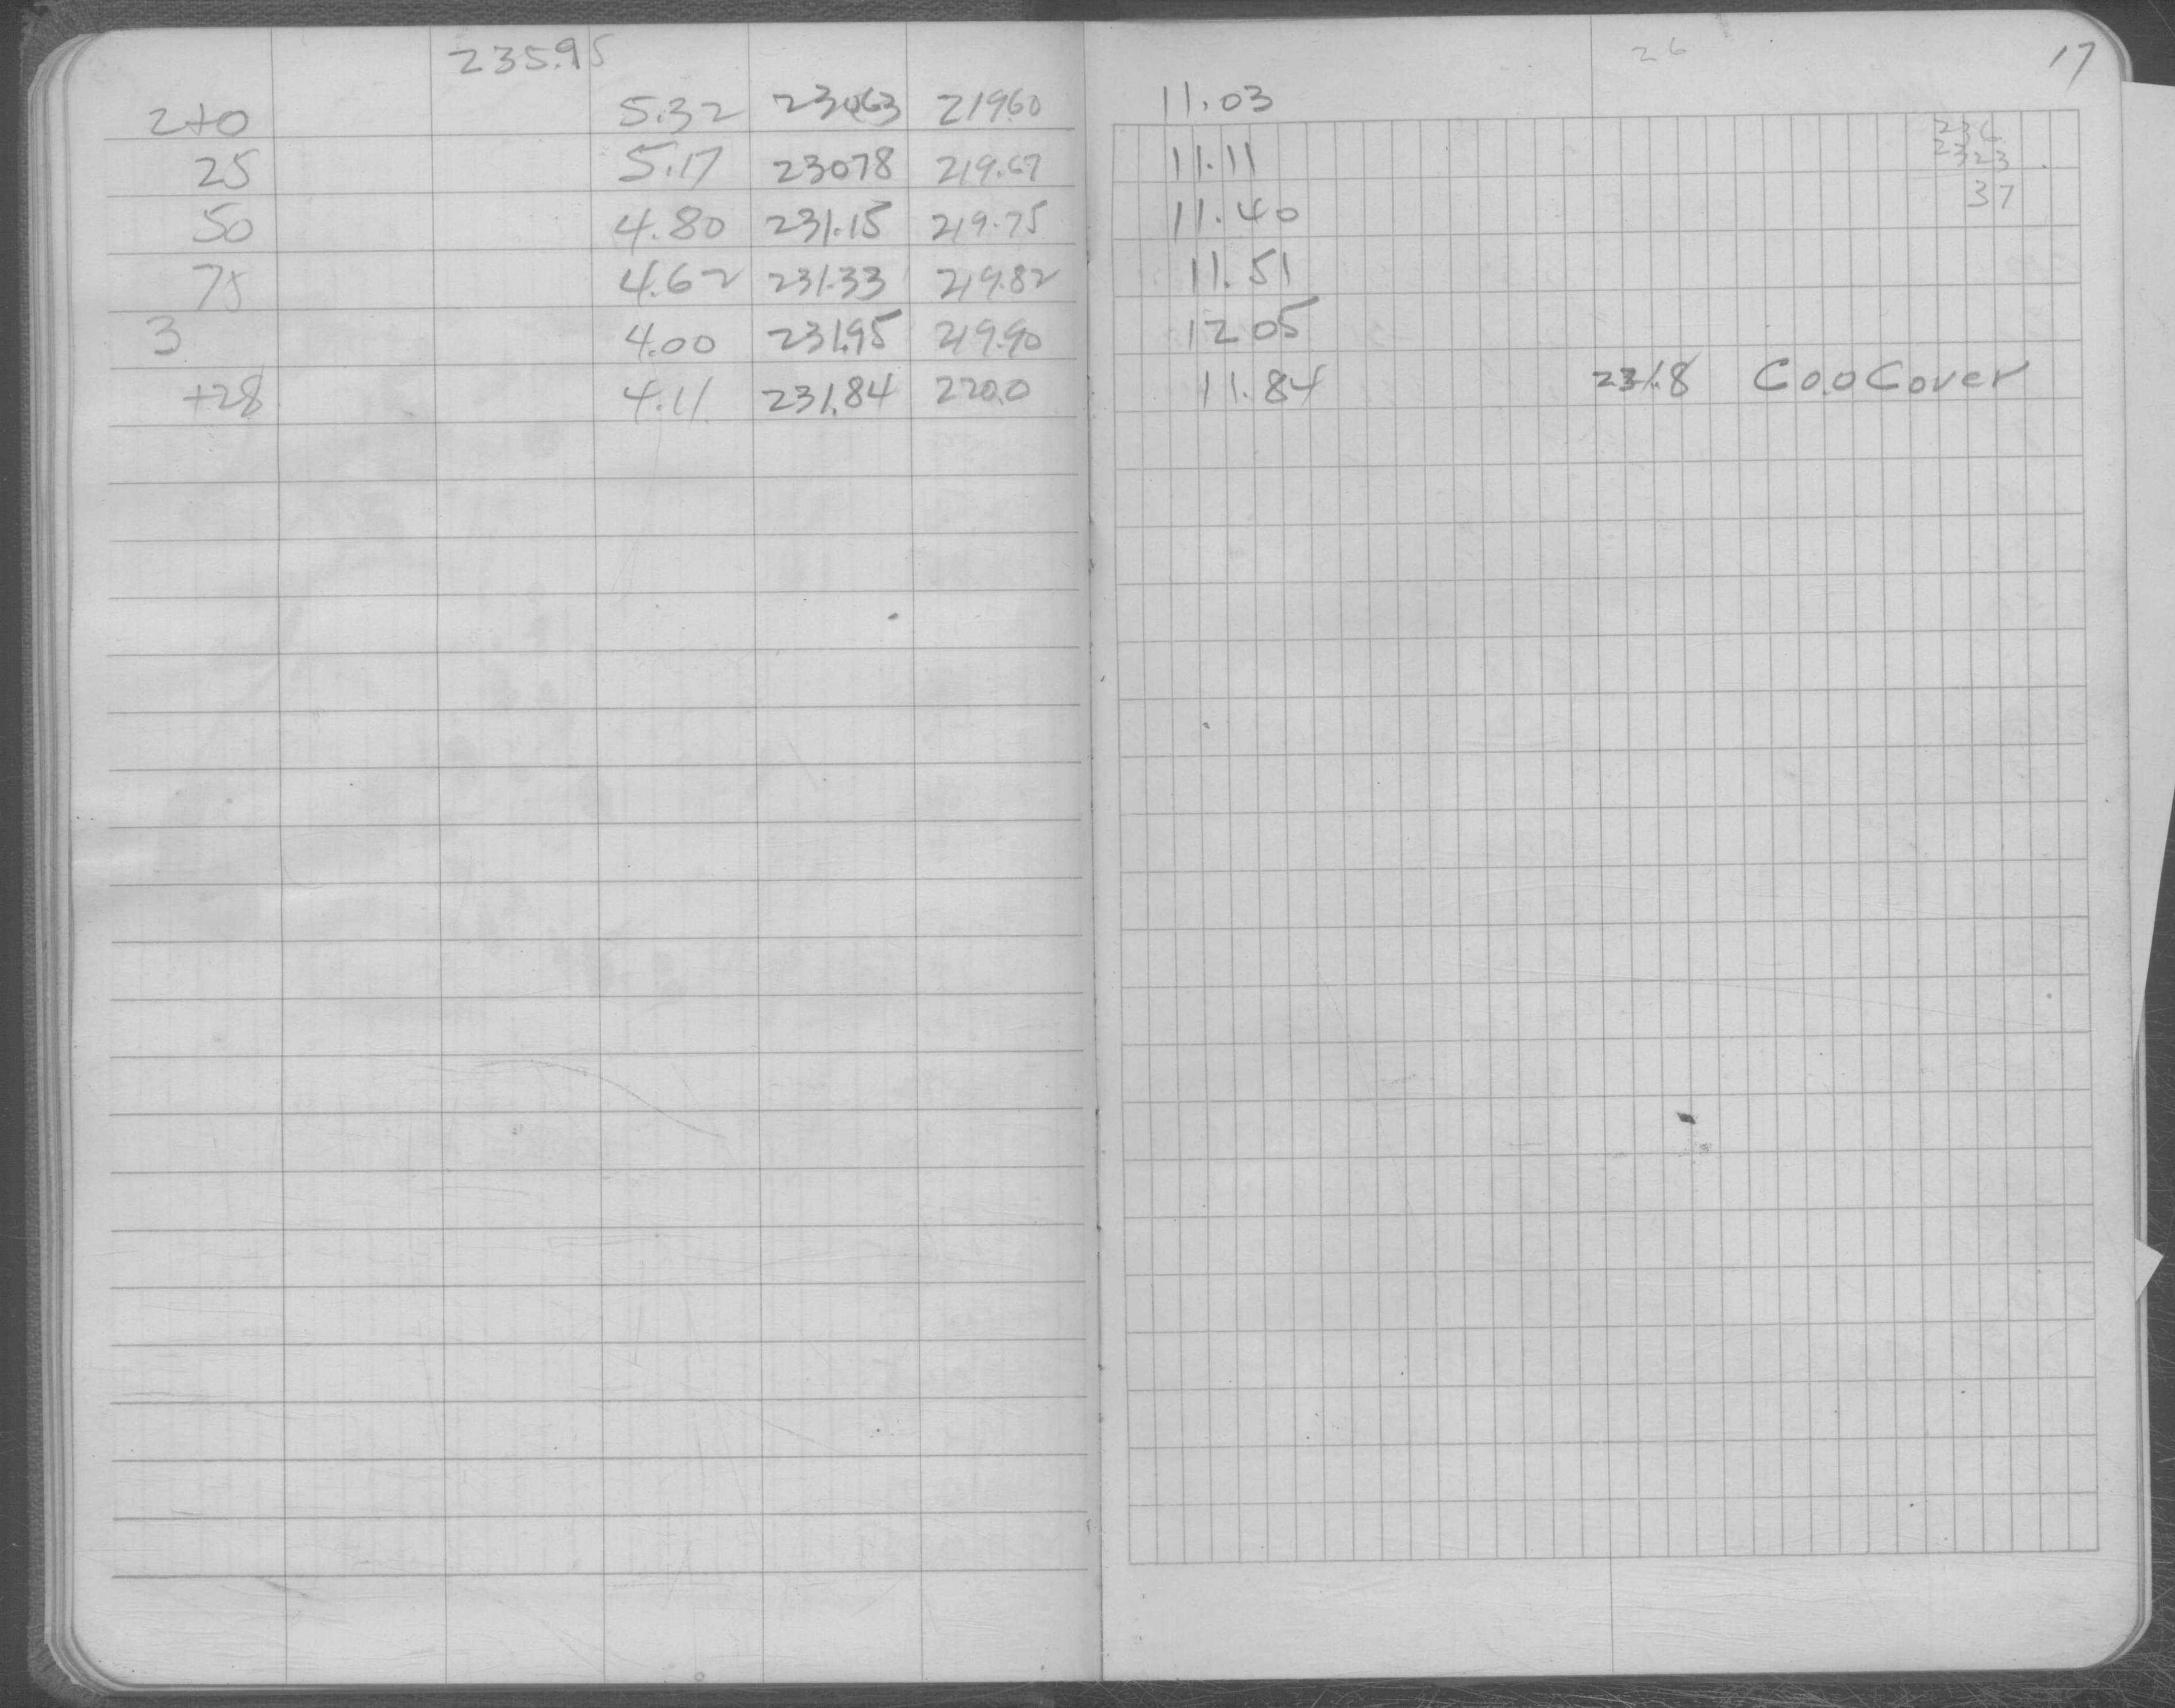 235.95 26 17
2+0 5.32 230.63 219.60 11.03
25 5.17 23078 219.67 11.11
50 4.80 231.15 219.75 11.40
75 4.62 231.33 219.82 11.51
3 4.00 231.95 219.90 12 05
+28 4.11 231.84 220.0 11.84 231.8 C.O.O Cover
2323
37